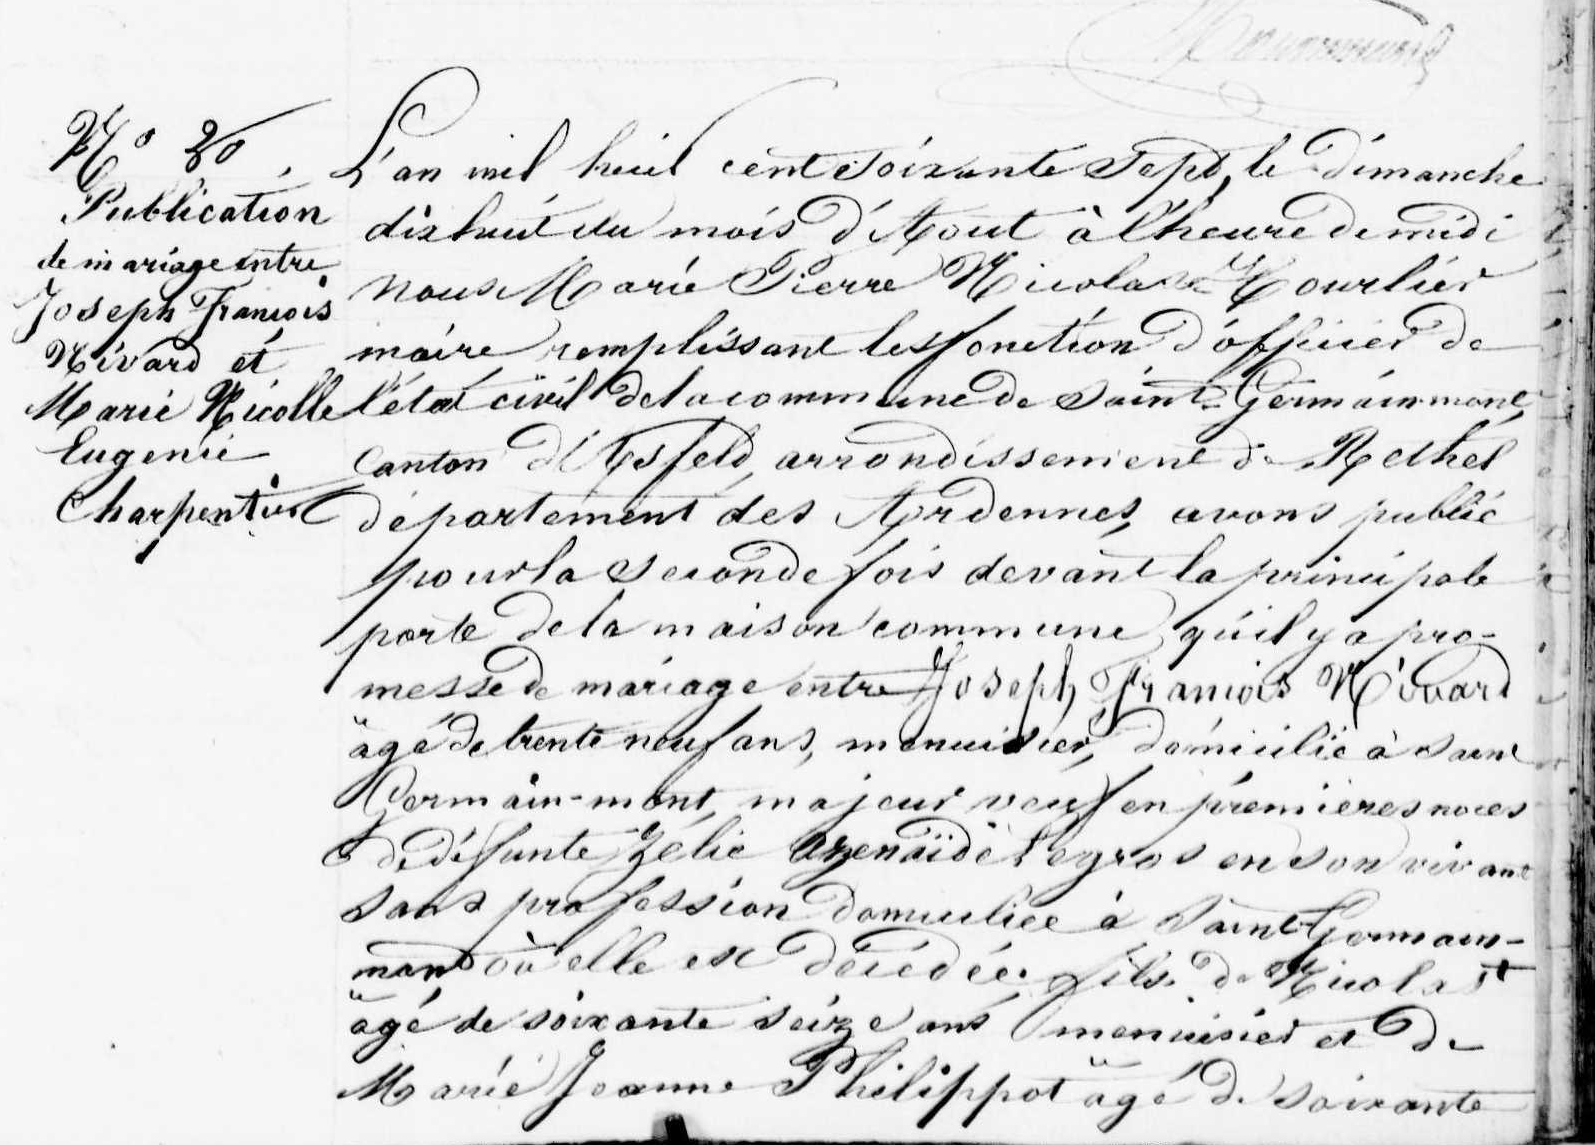 N° 20
Publication
de mariage entre
Joseph François
Nivard et
Marie Nicolle
Eugenie
Charpentier
L'an mil huit cent soixante sept, le dimanche
dix huit du mois d'Aout à l'heure de midi
nous Marie Pierre Nicolas Hourlier
maire remplissant les fonction d'officier de
l'état civil de la commune de Saint-Germainmont,
Canton d'Asfeld, arrondissement de Rethel
département des Ardennes, avons publié
pour la seconde fois devant la principale
porte de la maison commune, qu'il y a pro-
messe de mariage entre Joseph François Nivard
âgé de trente neuf ans, menuisier, domicilié à Saint
Germain-mont, majeur veuf en premières noces
de défunte Zélie Azenaïde Legros en son vivant
sans profession domiciliée à Saint-Germain-
mont où elle est décédée, fils de Nicolas
âgé de soixante seize ans menuisier et de
Marie Jeanne Philippot âgé de soixante